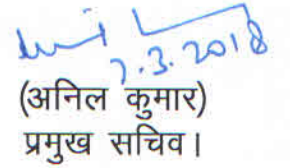 7.3.2018
(अनिल कुमार)
प्रमुख सचिव।